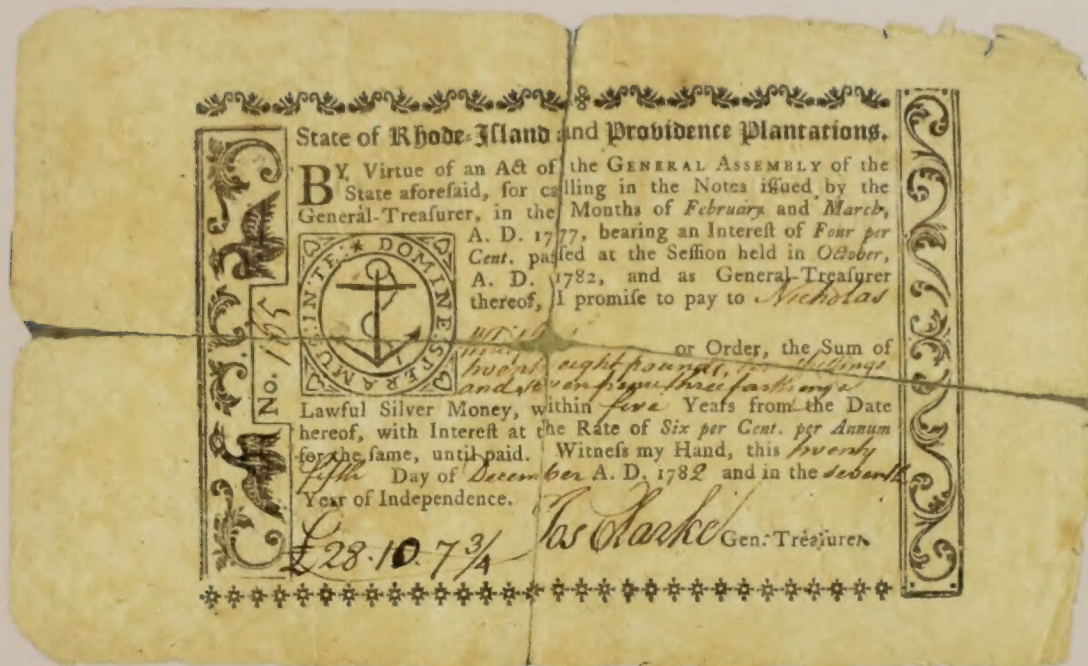 State of Rhode-Island and Providence Plantations.
BY Virtue of an Act of the GENERAL ASSEMBLY of the
State aforeſaid, for calling in the Notes iſſued by the
General-Treaſurer, in the Months of February and March,
A. D. 1777, bearing an Intereſt of Four per
Cent. paſſed at the Seſſion held in October,
A. D. 1782, and as General-Treaſurer
thereof, I promiſe to pay to Nicholas
or Order, the Sum of
twenty eight pounds, ten ſhillings
and seven pence three farthings
Lawful Silver Money, within five Years from the Date
hereof, with Intereſt at the Rate of Six per Cent. per Annum
for the ſame, until paid. Witneſs my Hand, this twenty
fifth Day of December A. D. 1782 and in the seventh
Year of Independence.
£28.10.7¾ Jos Clarke Gen. Treaſurer
IN TE DOMINE SPERAMUS
No.